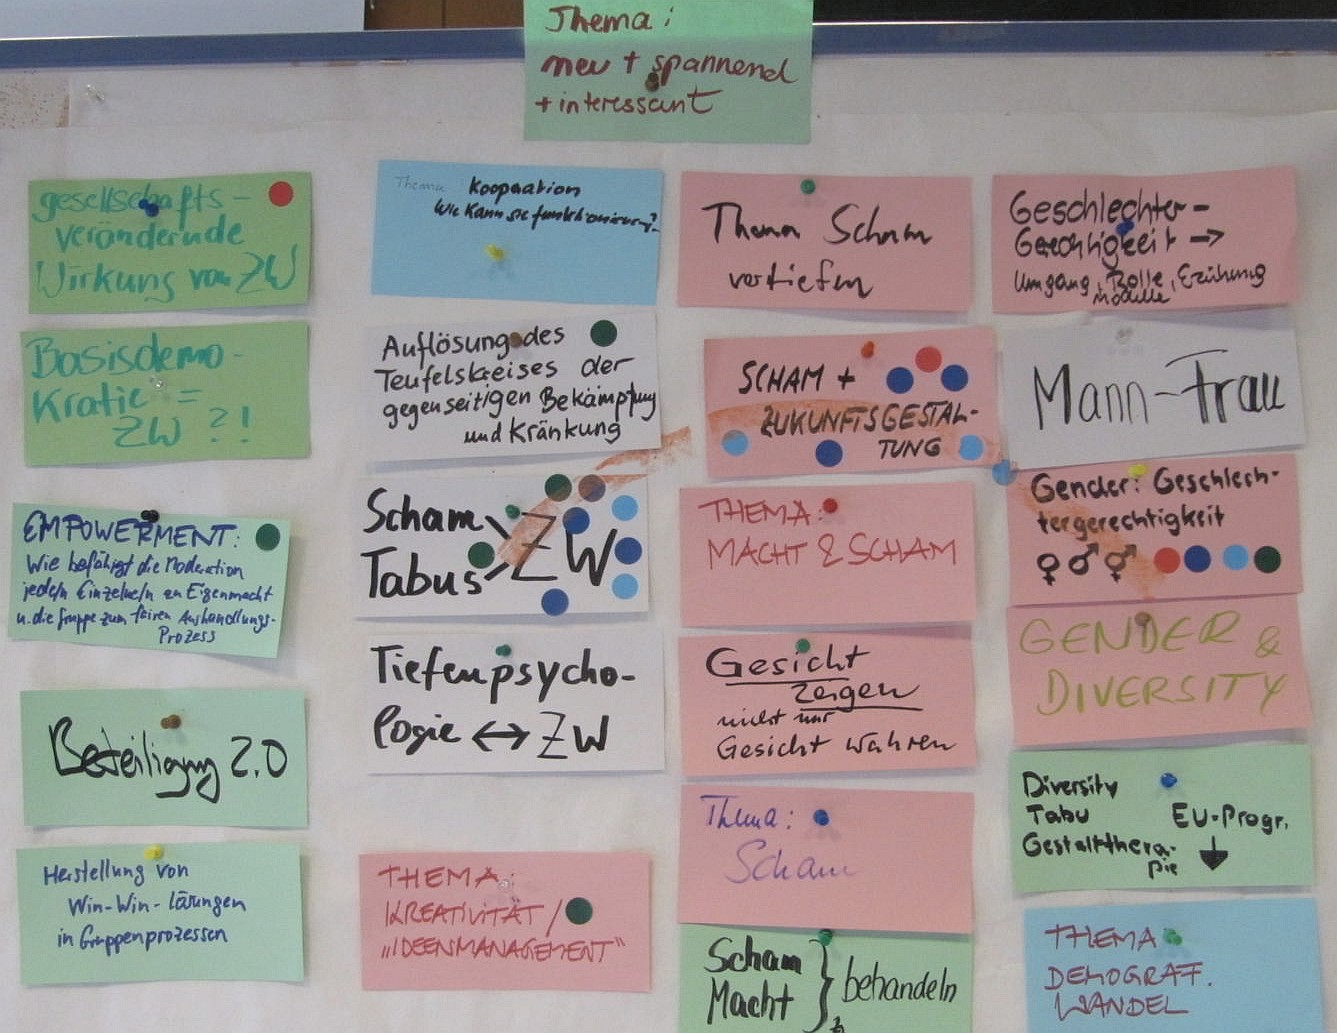 Thema:
neu + spannend
+ interessant
gesellschafts-
verändernde
Wirkung von ZW
Basisdemo-
kratie =
ZW ?!
EMPOWERMENT:
Wie befähigt die Moderation
jede/n Einzelne/n zu Eigenmacht
u. die Gruppe zum fairen Aushandlungs-
Prozess
Beteiligung 2.0
Herstellung von
Win-Win-Lösungen
in Gruppenprozessen
Thema Kooperation
Wie kann sie funktionieren?
Auflösung des
Teufelskreises der
gegenseitigen Bekämpfung
und Kränkung
Scham
Tabus
ZW
Tiefenpsycho-
logie ↔ ZW
THEMA:
KREATIVITÄT /
„IDEENMANAGEMENT"
Thema Scham
vertiefen
SCHAM +
ZUKUNFTSGESTAL-
TUNG
THEMA:
MACHT & SCHAM
Gesicht
zeigen
nicht nur
Gesicht wahren
Thema:
Scham
Scham
Macht } behandeln
Geschlechter-
Gerechtigkeit →
Umgang, Rolle, Erziehung
Modelle
Mann-Frau
Gender: Geschlech-
tergerechtigkeit
♀ ♂ ⚥
GENDER &
DIVERSITY
Diversity
Tabu EU-Progr.
Gestaltthera- ↓
pie
THEMA
DEMOGRAF.
WANDEL